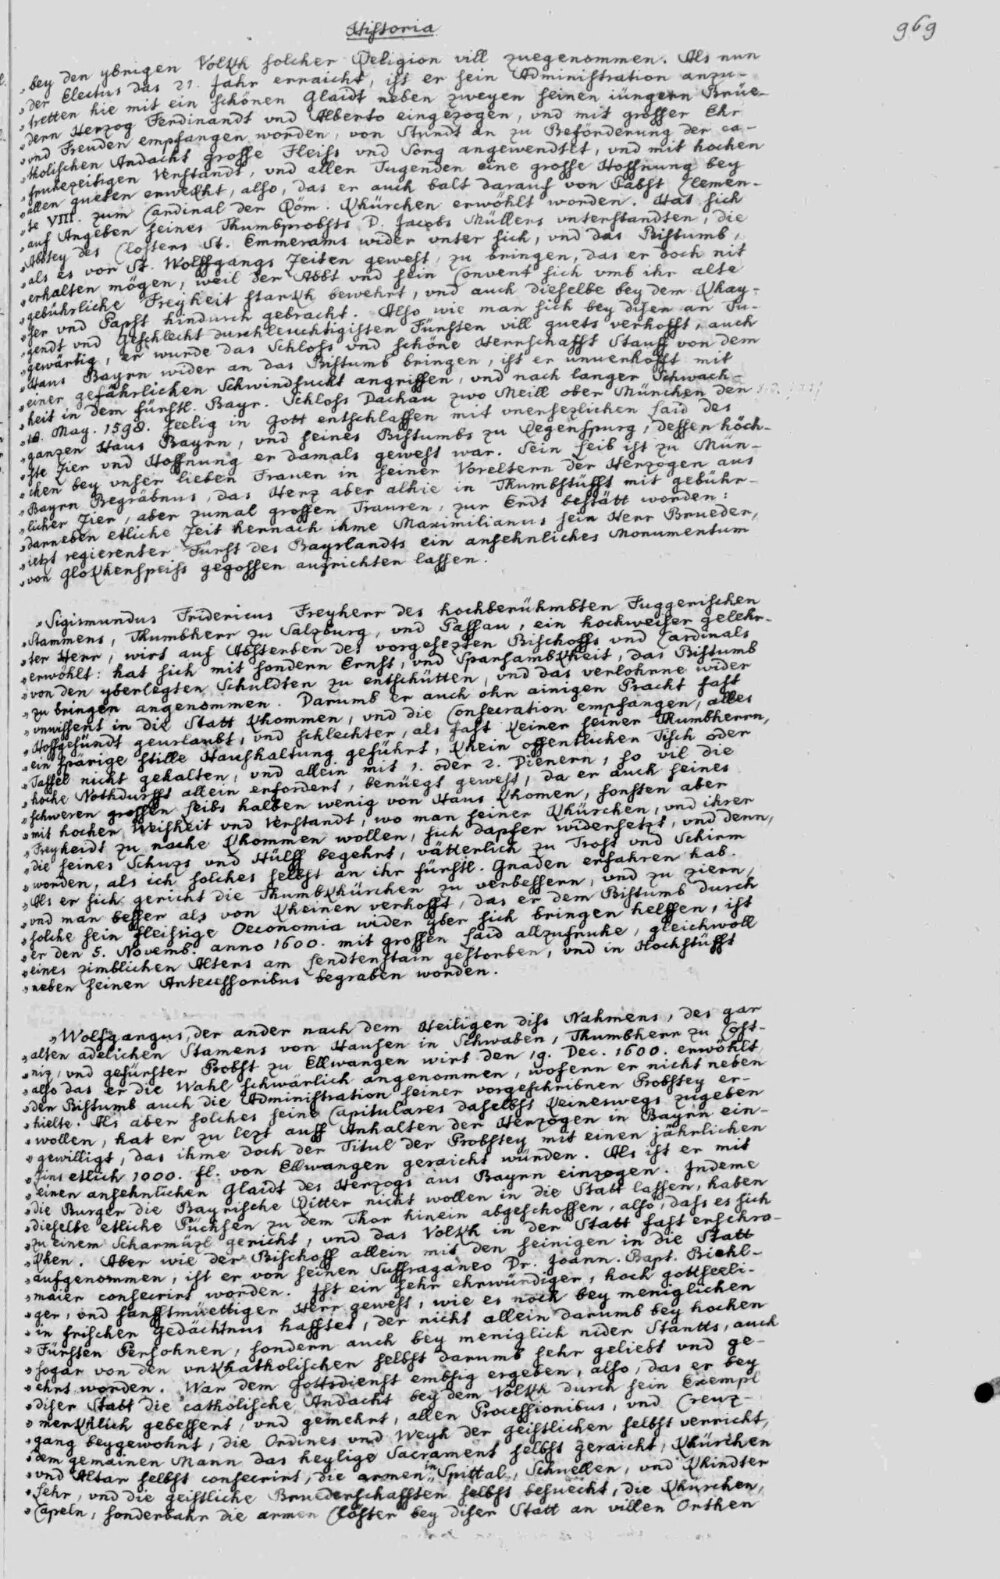 Historia
969
„bey den ybrigen Volkh solcher Religion vill zuegenommen. Als nun
„der Electus das 21. Jahr erraicht, ist er sein Administration anzu-
„tretten hie mit ein schönen Glaidt neben zweyen seinen iüngern Brüe-
„dern Herzog Ferdinandt vnd Alberto eingezogen, vnd mit grosser Ehr
„vnd Freuden empfangen worden, von Stundt an zu Beförderung der ca-
„tholischen Andacht grosse Fleiss vnd Sorg angewendtet, vnd mit hochen
„fruhezeitigen Verstandt, vnd allen Tugenden eine grosse Hoffnung bey
„allen gueten erwekht, also, das er auch balt darauf von Pabst Clemen-
„te VIII. zum Cardinal der Röm. Khürchen erwöhlt worden. Hat sich
„auf Angeben seines Thumbprobsts D. Jacobs Müllers vnterstandten, die
„Abbtey des Closters St. Emmerams wider vnter sich, vnd das Bistumb,
„als es vor St. Wolffgangs Zeiten gewest, zu bringen, das er doch nit
„erhalten mögen, weil der Abbt vnd sein Convent sich vmb ihr alte
„gebührliche Freyheit starkh bewehrt, vnd auch dieselbe bey dem Khay-
„ser vnd Papst hindurch gebracht. Also wie man sich bey disen an Tu-
„gendt vnd Geschlecht durchleuchtigisten Fürsten vill guets verhofft, auch
„gewärtig, er wurde das Schloss vnd schöne Herrschafft Stauff von dem
„Haus Bayrn wider an das Bistumb bringen, ist er vnuerhofft mit
„einer gefährlichen Schwindsucht angriffen, vnd nach langer Schwach-
„heit in dem fürstl. Bayr. Schloss Dachau zwo Meill ober München den
„18. May. 1598. seelig in Gott entschlaffen mit vnersezlichen Laid des
„ganzen Haus Bayrn, vnd seines Bistumbs zu Regenspurg, dessen höch-
„ste Zier vnd Hoffnung er damals gewest war. Sein Leib ist zu Mün-
„chen bey vnser lieben Frauen in seiner Voreltern der Herzogen aus
„Bayrn Begräbnus, das Herz aber alhie in Thumbstüfft mit gebühr-
„licher Zier, aber zumal grossen Trauren, zur Erdt bestätt worden:
„darneben etliche Zeit hernach ihme Maximilianus sein Herr Brueder,
„ietzt regierenter Fürst des Bayrlandts ein ansehnliches Monumentum
„von Glokhenspeiss gegossen aufrichten lassen.
„Sigismundus Fridericus Freyherr des hochberühmbten Fuggerischen
„Stammens, Thumbherr zu Salzburg, vnd Passau, ein hochweiser gelehr-
„ter Herr, wirt auf Absterben des vorgesezten Bischoffs vnd Cardinals
„erwöhlt: hat sich mit sondern Ernst, vnd Sparsambkheit, das Bistumb
„von den yberlegten Schuldten zu entschütten, vnd das verlohrne wider
„zu bringen angenommen. Darumb er auch ohn ainigen Pracht fast
„vnwissent in die Statt khommen, vnd die Consecration empfangen, alles
„Hoffgesündt geurlaubt, vnd schlechter, als fast keiner seiner Thumbherrn,
„ein spärige stille Haushaltung geführt, khein offentlichen Tisch oder
„Taffel nicht gehalten, vnd allein mit 1. oder 2. Dienern, so vil die
„hoche Nothdurfft allein erfordert, benüegt gewest, da er auch seines
„schweren grossen Leibs halben wenig von Haus khomen, sonsten aber
„mit hocher Weisheit vnd Verstandt, wo man seiner Khürchen, vnd ihrer
„Freyheidt zu nache khommen wollen, sich dapfer widersetzt, vnd denn,
„die seines Schuzs vnd Hülff begehrt, vätterlich zu Trost vnd Schirm
„worden, als ich solches selbst an ihr fürstl. Gnaden erfahren hab.
„Als er sich gericht die Thumbkhürchen zu verbessern, vnd zu ziern,
„vnd man besser als von kheinen verhofft, das er dem Bistumb durch
„solche sein fleissige Oeconomia wider yber sich bringen helffen, ist
„er den 5. Novemb. anno 1600. mit grossen Laid allzufruhe, gleichwoll
„eines zimblichen Alters am Lendtenstain gestorben, vnd in Hochstüfft
„neben seinen Antecessoribus begraben worden.
„Wolfgangus, der ander nach dem Heiligen diss Nahmens, des gar
„alten adelichen Stamens von Hausen in Schwaben, Thumbherr zu Cost-
„niz, vnd gefürster Probst zu Ellwangen wirt den 19. Dec. 1600. erwöhlt,
„also das er die Wahl schwärlich angenommen, wofern er nicht neben
„den Bistumb auch die Administration seiner vorgeschribnen Probstey er-
„hielte. Als aber solches seine Capitulares daselbst keineswegs zugeben
„wollen, hat er zu lezt auff Anhalten der Herzogen in Bayrn ein-
„gewilligt, das ihme doch der Titul der Probstey mit einen jährlichen
„Zins etlich 1000. fl. von Ellwangen geraicht würden. Als ist er mit
„einen ansehnlichen Glaidt des Herzogs aus Bayrn einzogen. Indeme
„die Burger die Bayrische Ritter nicht wollen in die Statt lassen, haben
„dieselbe etliche Püchsen zu dem Thor hinein abgeschossen, also, dass es sich
„zu einem Scharmüzl gericht, vnd das Volkh in der Statt fast erschro-
„khen. Aber wie der Bischoff allein mit den seinigen in die Statt
„aufgenommen, ist er von seinen Suffraganeo Dr. Joann. Bapt. Bichl-
„maier consecrirt worden. Ist ein sehr ehrwürdiger, hoch gottseeli-
„ger, vnd sanfftmüettiger Herr gewest, wie es noch bey meniglichen
„in frischen Gedächtnus hafftet, der nicht allein darumb bey hochen
„Fürsten Persohnen, sondern auch bey meniglich nider Standts, auch
„sogar von den vnkhatholischen selbst darumb sehr geliebt vnd ge-
„ehrt worden. War dem Gottsdienst embsig ergeben, also, das er bey
„diser Statt die catholische Andacht bey dem Volkh durch sein Exempl
„merkhlich gebessert, vnd gemehrt, allen Processionibus, vnd Creuz-
„gang beygewohnt, die Ordines vnd Weyh der geistlichen selbst verricht,
„dem gemainen Mann das heylige Sacrament selbst geraicht, Khürchen
„vnd Altar selbst consecrirt, die armen in Spittal, Schuellen, vnd Khindter
„Lehr, vnd die geistliche Bruederschafften selbst besuecht, die Khürchen,
„Capeln, sonderbahr die armen Clöster bey diser Statt an villen Orthen